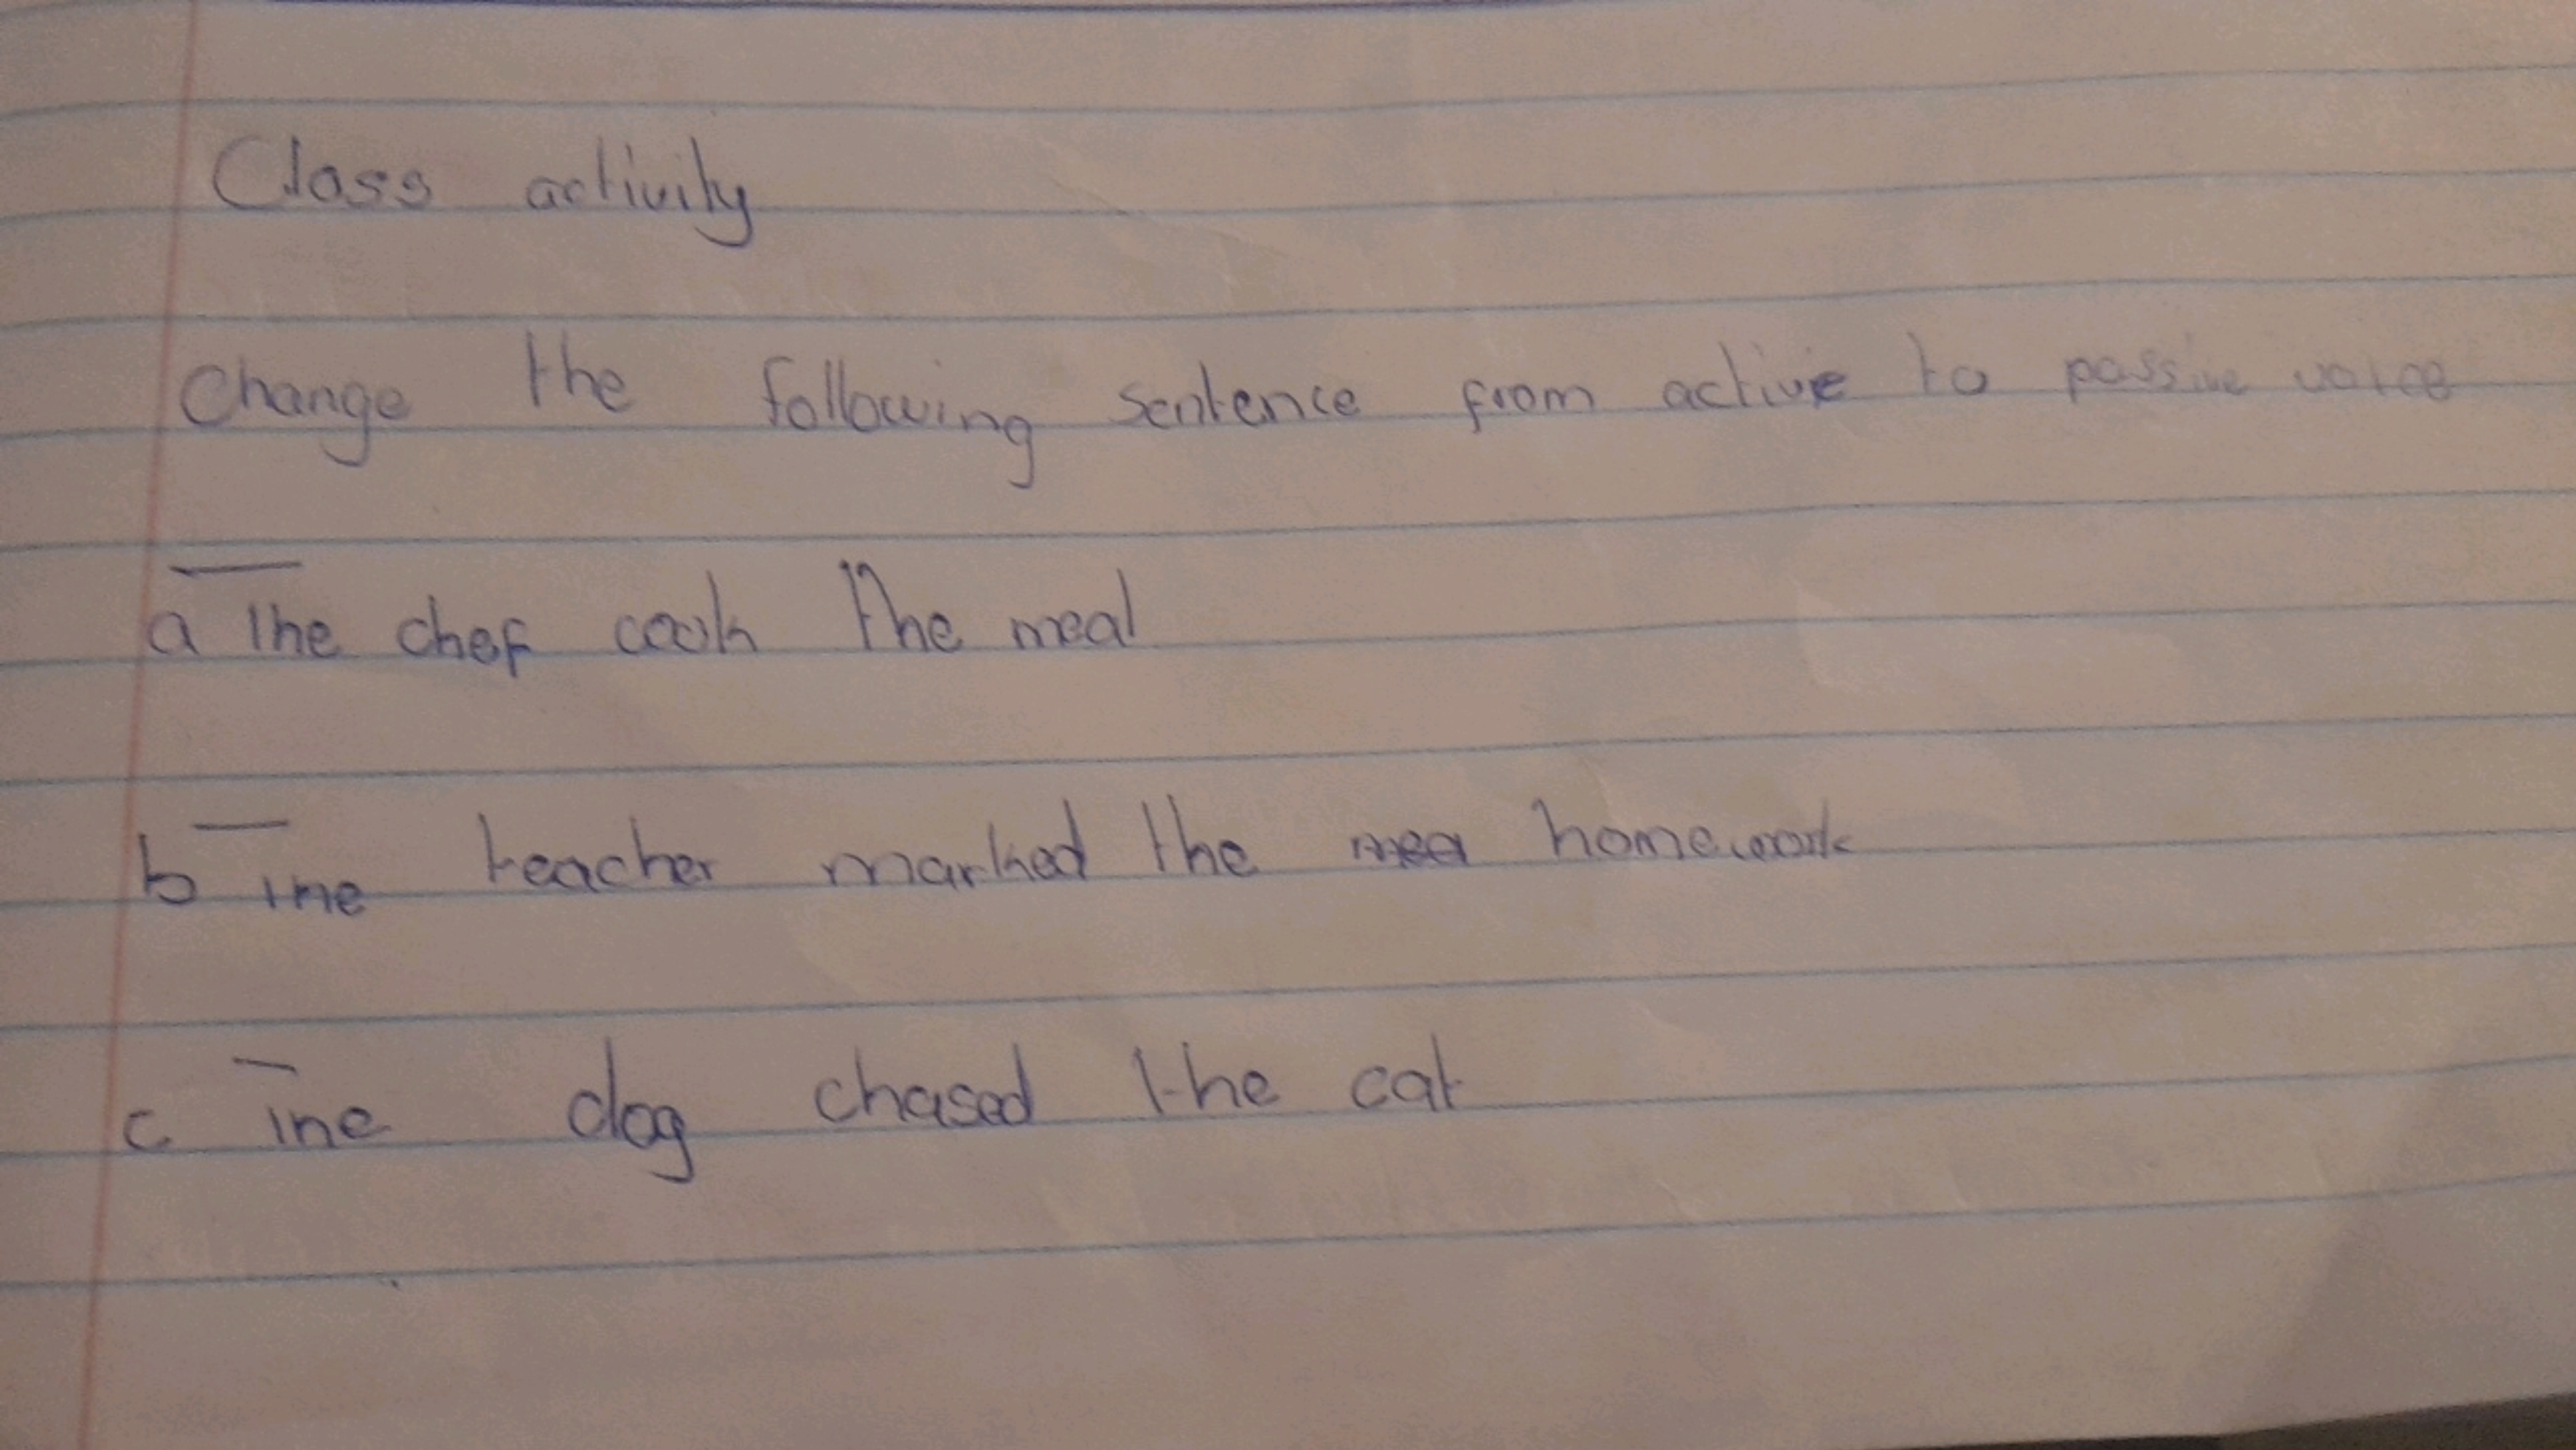 Class activity
Change the following sentence from active to passive voice
a The chef cook the meal
b The teacher marked the homework
c The dog chased the cat